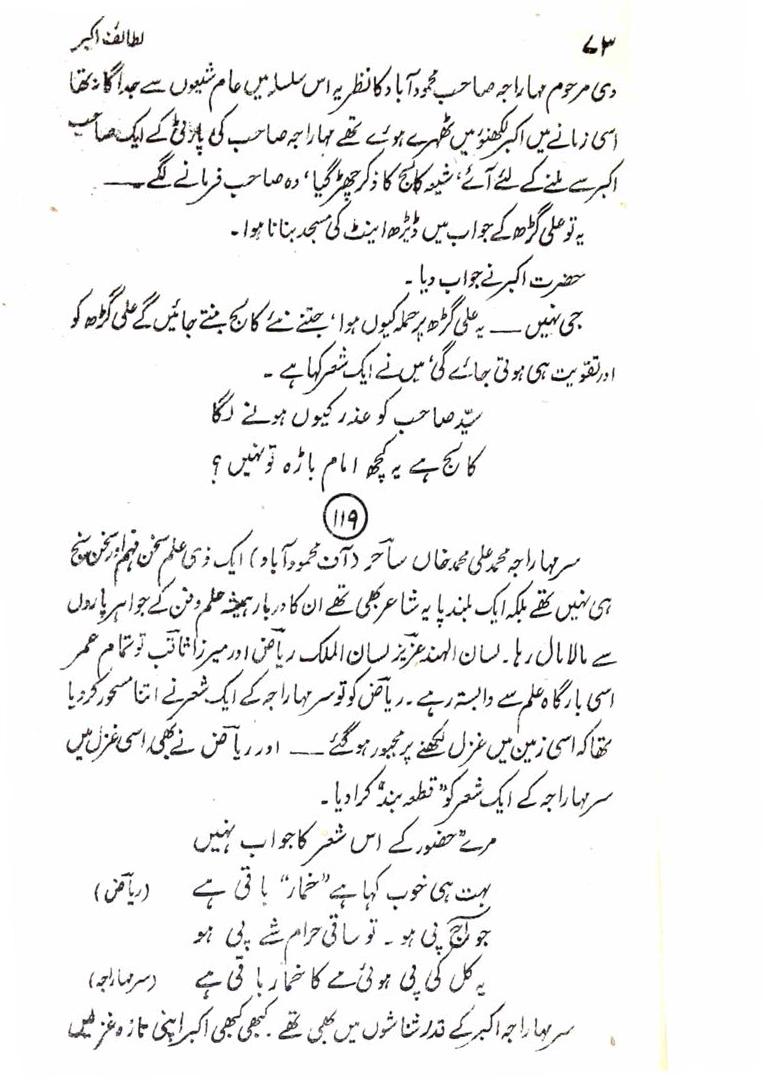 ۷۳ لطائف اکبر
دی مرحوم مہاراجہ صاحب محمودآباد کا نظریہ اس سلسلہ میں عام شیعوں سے جداگانہ تھا
اسی زمانے میں اکبر لکھنؤ میں ٹھہرے ہوئے تھے مہاراجہ صاحب کی پارٹی کے ایک صاحب
اکبر سے ملنے کے لئے آئے، شیعہ کالج کا ذکر چھڑ گیا، وہ صاحب فرمانے لگے ——
یہ تو علی گڑھ کے جواب میں ڈیڑھ اینٹ کی مسجد بنانا ہوا۔
حضرت اکبر نے جواب دیا۔
جی نہیں — یہ علی گڑھ پر حملہ کیوں ہوا، جتنے نئے کالج بنتے جائیں گے علی گڑھ کو
اور تقویت ہی ہوتی جائے گی، میں نے ایک شعر کہا ہے ۔
سیّد صاحب کو عذر کیوں ہونے لگا
کالج ہے یہ کچھ امام باڑہ تو نہیں ؟
۱۱۹
سر مہاراجہ محمد علی محمد خاں ساحر (آف محمودآباد) ایک ذی علم سخن فہم اور سخن سنج
ہی نہیں تھے بلکہ ایک بلند پایہ شاعر بھی تھے ان کا دربار ہمیشہ علم و فن کے جواہر پاروں
سے مالا مال رہا۔ لسان الہند عزیز لسان الملک ریاض اور میرزا ثاقب تو تمام عمر
اسی بارگاہ علم سے وابستہ رہے۔ ریاض کو تو سر مہاراجہ کے ایک شعر نے اتنا مسحور کر دیا
تھا کہ اسی زمین میں غزل لکھنے پر مجبور ہو گئے —— اور ریاض نے بھی اسی غزل میں
سر مہاراجہ کے ایک شعر کو "قطعہ بند" کرا دیا۔
مرے حضور کے اس شعر کا جواب نہیں
بہت ہی خوب کہا ہے "خمار" باقی ہے (ریاض)
جو آج پی ہو ۔ تو ساقی حرام شے پی ہو
یہ کل کی پی ہوئی مے کا خمار باقی ہے (سر مہاراجہ)
سر مہاراجہ اکبر کے قدر شناسوں میں بھی تھے ۔ کبھی کبھی اکبر اپنی تازہ غزلیں